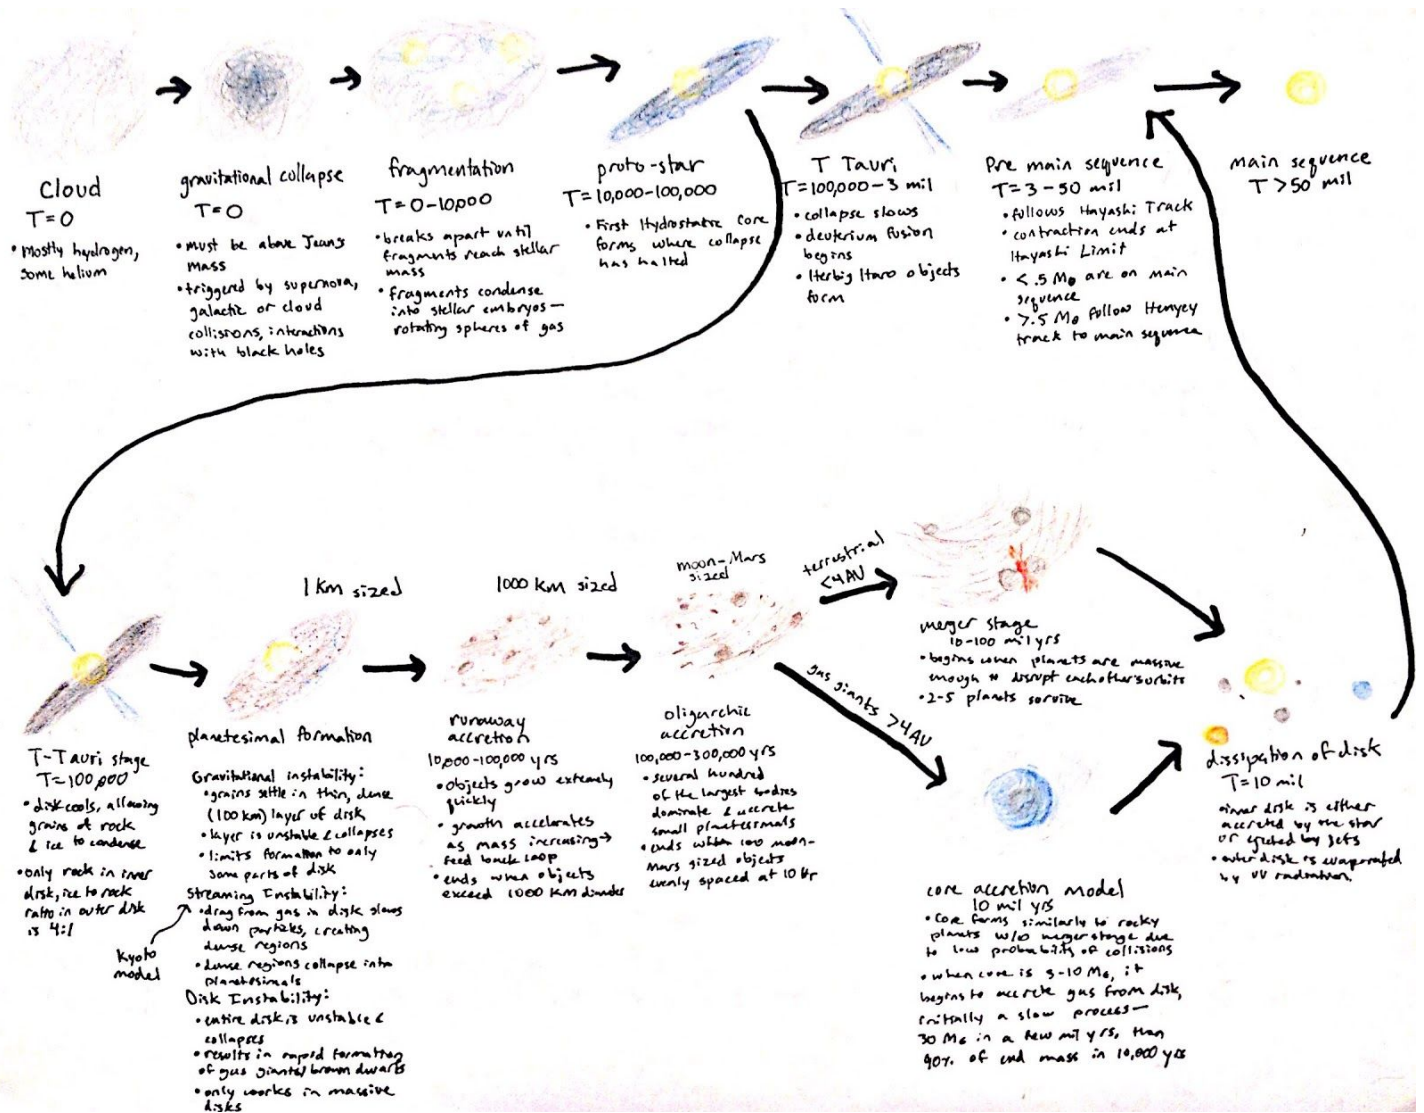 Cloud
T=0
• mostly hydrogen,
some helium
gravitational collapse
T=0
• must be above Jeans
mass
• triggered by supernova,
galactic or cloud
collisions, interactions
with black holes
fragmentation
T=0-10,000
• breaks apart until
fragments reach stellar
mass
• fragments condense
into stellar embryos—
rotating spheres of gas
proto-star
T=10,000-100,000
• First Hydrostatic Core
forms where collapse
has halted
T Tauri
T=100,000-3 mil
• collapse slows
• deuterium fusion
begins
• Herbig Haro objects
form
Pre main sequence
T=3-50 mil
• follows Hayashi Track
• contraction ends at
Hayashi Limit
• <.5 M⊙ are on main
sequence
• >.5 M⊙ follow Henyey
track to main sequence
main sequence
T>50 mil
T-Tauri stage
T=100,000
• disk cools, allowing
grains of rock
& ice to condense
• only rock in inner
disk, ice to rock
ratio in outer disk
is 4:1
1 km sized
planetesimal formation
Gravitational instability:
• grains settle in thin, dense
(100 km) layer of disk
• layer is unstable & collapses
• limits formation to only
some parts of disk
Streaming Instability:
• drag from gas in disk slows
down particles, creating
dense regions
• dense regions collapse into
planetesimals
Kyoto
model
Disk Instability:
• entire disk is unstable &
collapses
• results in rapid formation
of gas giants/brown dwarfs
• only works in massive
disks
1000 km sized
runaway
accretion
10,000-100,000 yrs
• objects grow extremely
quickly
• growth accelerates
as mass increasing→
feed back loop
• ends when objects
exceed 1000 km diameter
moon-Mars
sized
oligarchic
accretion
100,000-300,000 yrs
• several hundred
of the largest bodies
dominate & accrete
small planetesimals
• ends when 100 moon-
Mars sized objects
evenly spaced at 10 Hr
terrestrial
<4AU
merger stage
10-100 mil yrs
• begins when planets are massive
enough to disrupt each other's orbits
• 2-5 planets survive
gas giants >4AU
core accretion model
10 mil yrs
• core forms similarly to rocky
planets w/o merger stage due
to low probability of collisions
• when core is 5-10 M⊕, it
begins to accrete gas from disk,
initially a slow process—
30 M⊕ in a few mil yrs, then
90% of end mass in 10,000 yrs
dissipation of disk
T=10 mil
• inner disk is either
accreted by the star
or ejected by jets
• outer disk is evaporated
by UV radiation.